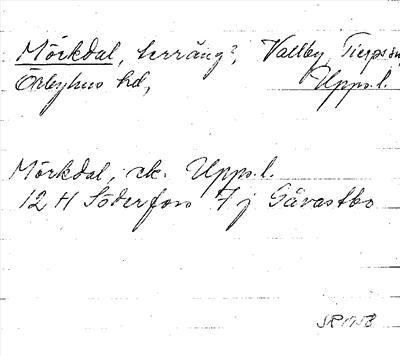 Mörkdal, terräng?, Vallby, Tierps sn,
Örbyhus hd, Upps. l.
Mörkdal, ek. Upps. l.
12 H Söderfors 7 j Gåvastbo